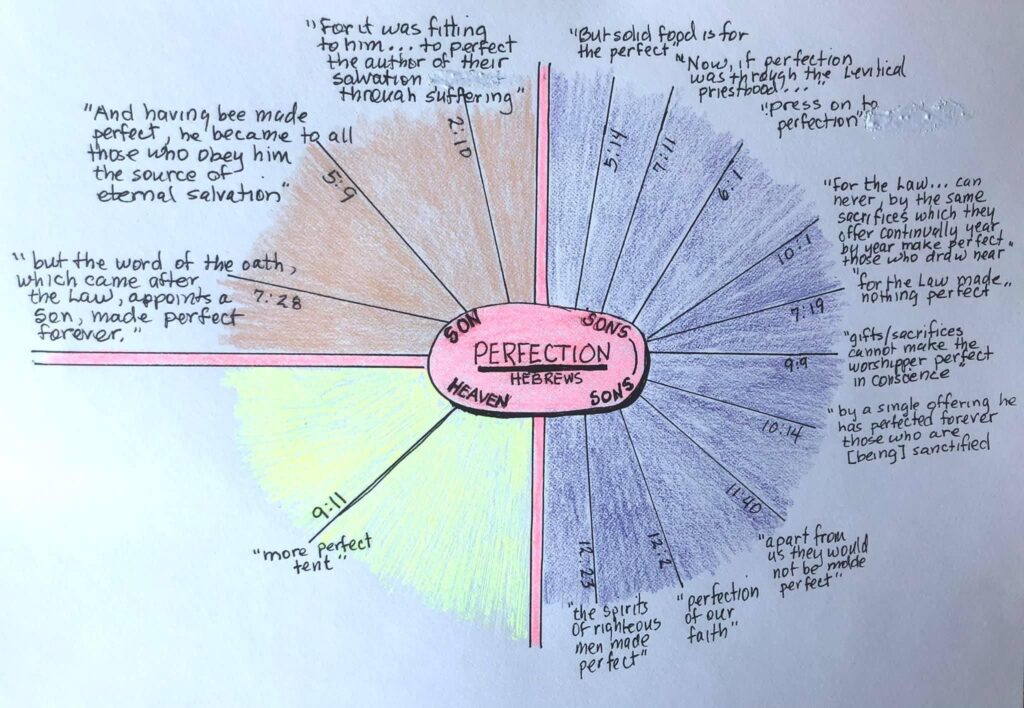 "For it was fitting
to him... to perfect
the author of their
salvation
through suffering"
2:10
"And having bee made
perfect, he became to all
those who obey him
the source of
eternal salvation"
5:9
"but the word of the oath,
which came after
the Law, appoints a
Son, made perfect
forever."
7:28
"But solid food is for
the perfect"
5:14
"Now, if perfection
was through the Levitical
priesthood..."
7:11
"press on to
perfection"
6:1
"for the Law... can
never, by the same
sacrifices which they
offer continually year
by year make perfect
those who draw near"
10:1
"for the Law made
nothing perfect"
7:19
"gifts/sacrifices
cannot make the
worshipper perfect
in conscence"
9:9
"by a single offering he
has perfected forever
those who are
[being] sanctified
10:14
"apart from
us they would
not be made
perfect"
11:40
"perfection
of our
faith"
12:2
"the spirits
of righteous
men made
perfect"
12:23
"more perfect
tent"
9:11
SON
SONS
PERFECTION
HEBREWS
HEAVEN
SONS